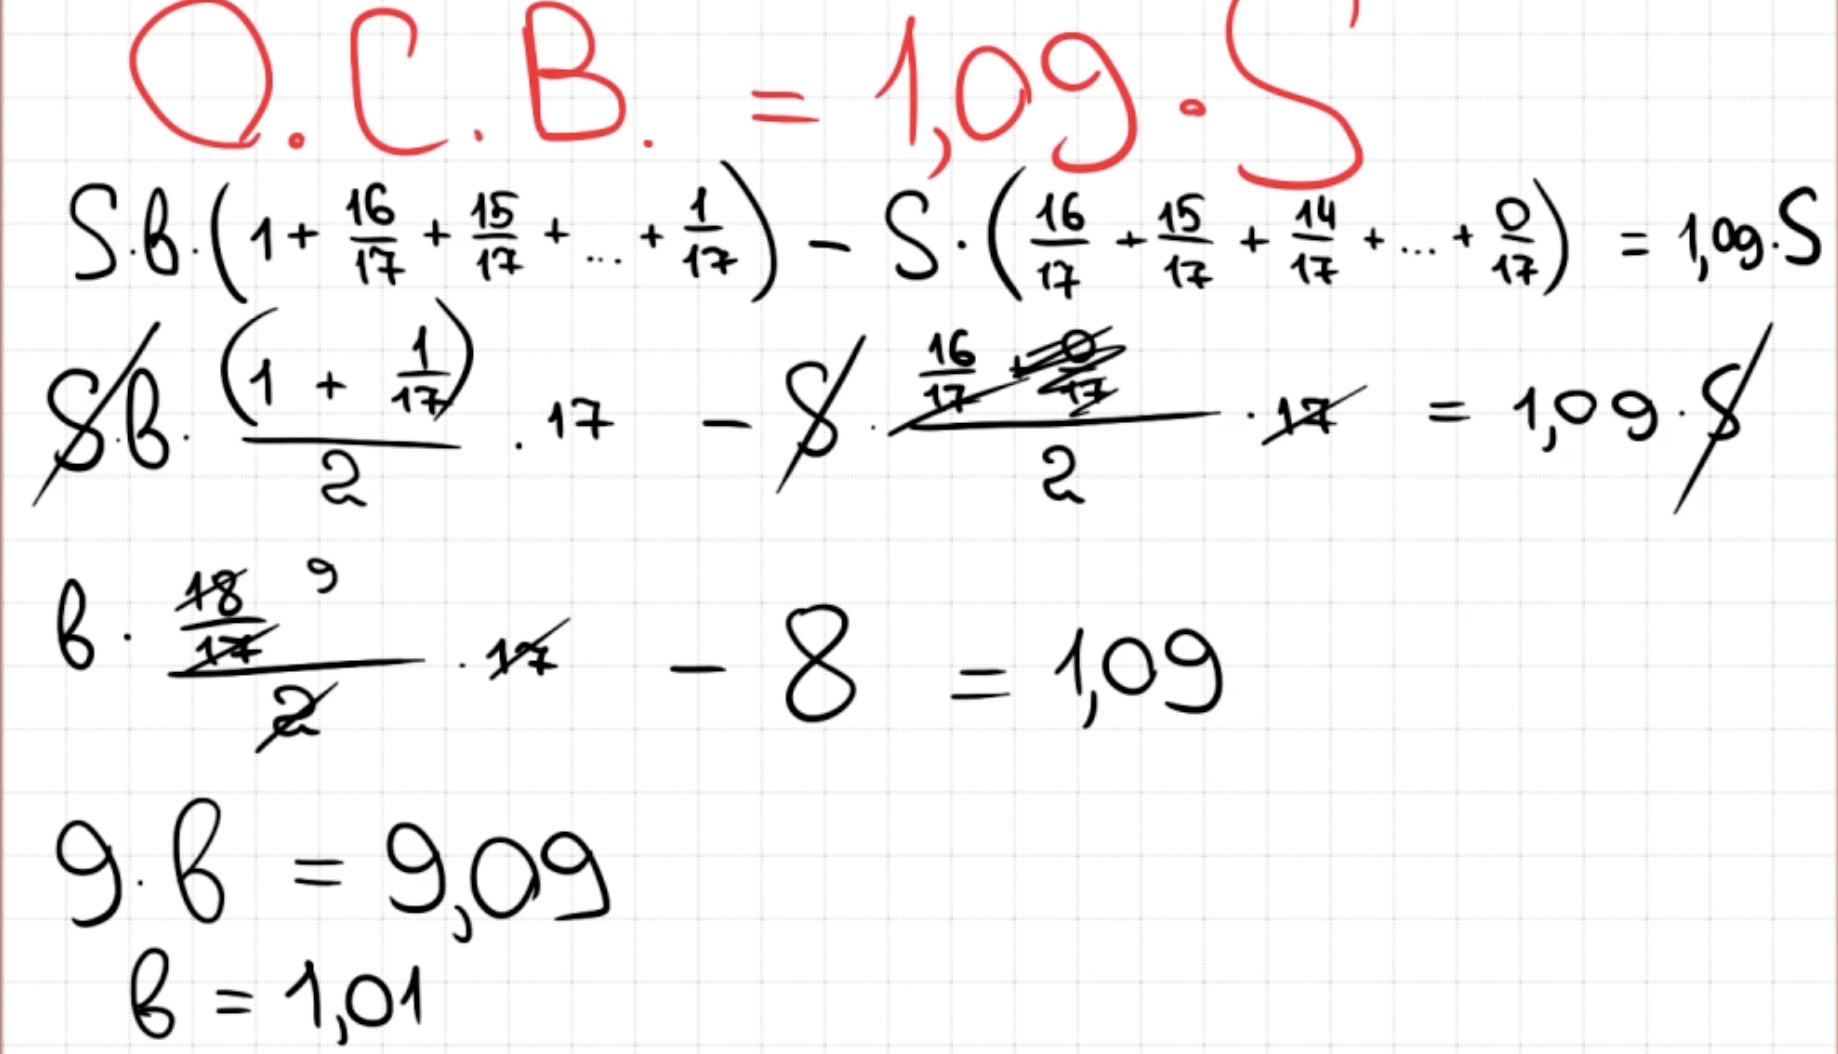 О.С.В. = 1,09·S
S·b·(1 + 16/17 + 15/17 + ... + 1/17) − S·(16/17 + 15/17 + 14/17 + ... + 0/17) = 1,09·S
S·b·(1 + 1/17)/2 · 17 − S·(16/17 + 0/17)/2 · 17 = 1,09·S
b · (18/17)/2 · 17 − 8 = 1,09
9
9·b = 9,09
b = 1,01